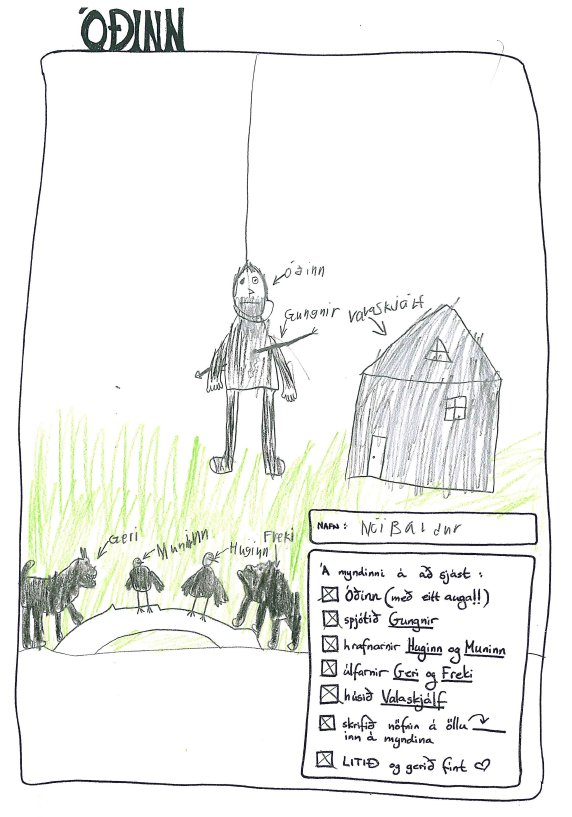 ÓÐINN
Óðinn
Gungnir
Valaskjálf
Geri
Muninn
Huginn
Freki
NAFN: Nói Baldur
Á myndinni á að sjást:
Óðinn (með eitt auga!!)
spjótið Gungnir
hrafnarnir Huginn og Muninn
úlfarnir Geri og Freki
húsið Valaskjálf
skrifið nöfnin á öllu
inn á myndina
LITIÐ og gerið fínt ♡